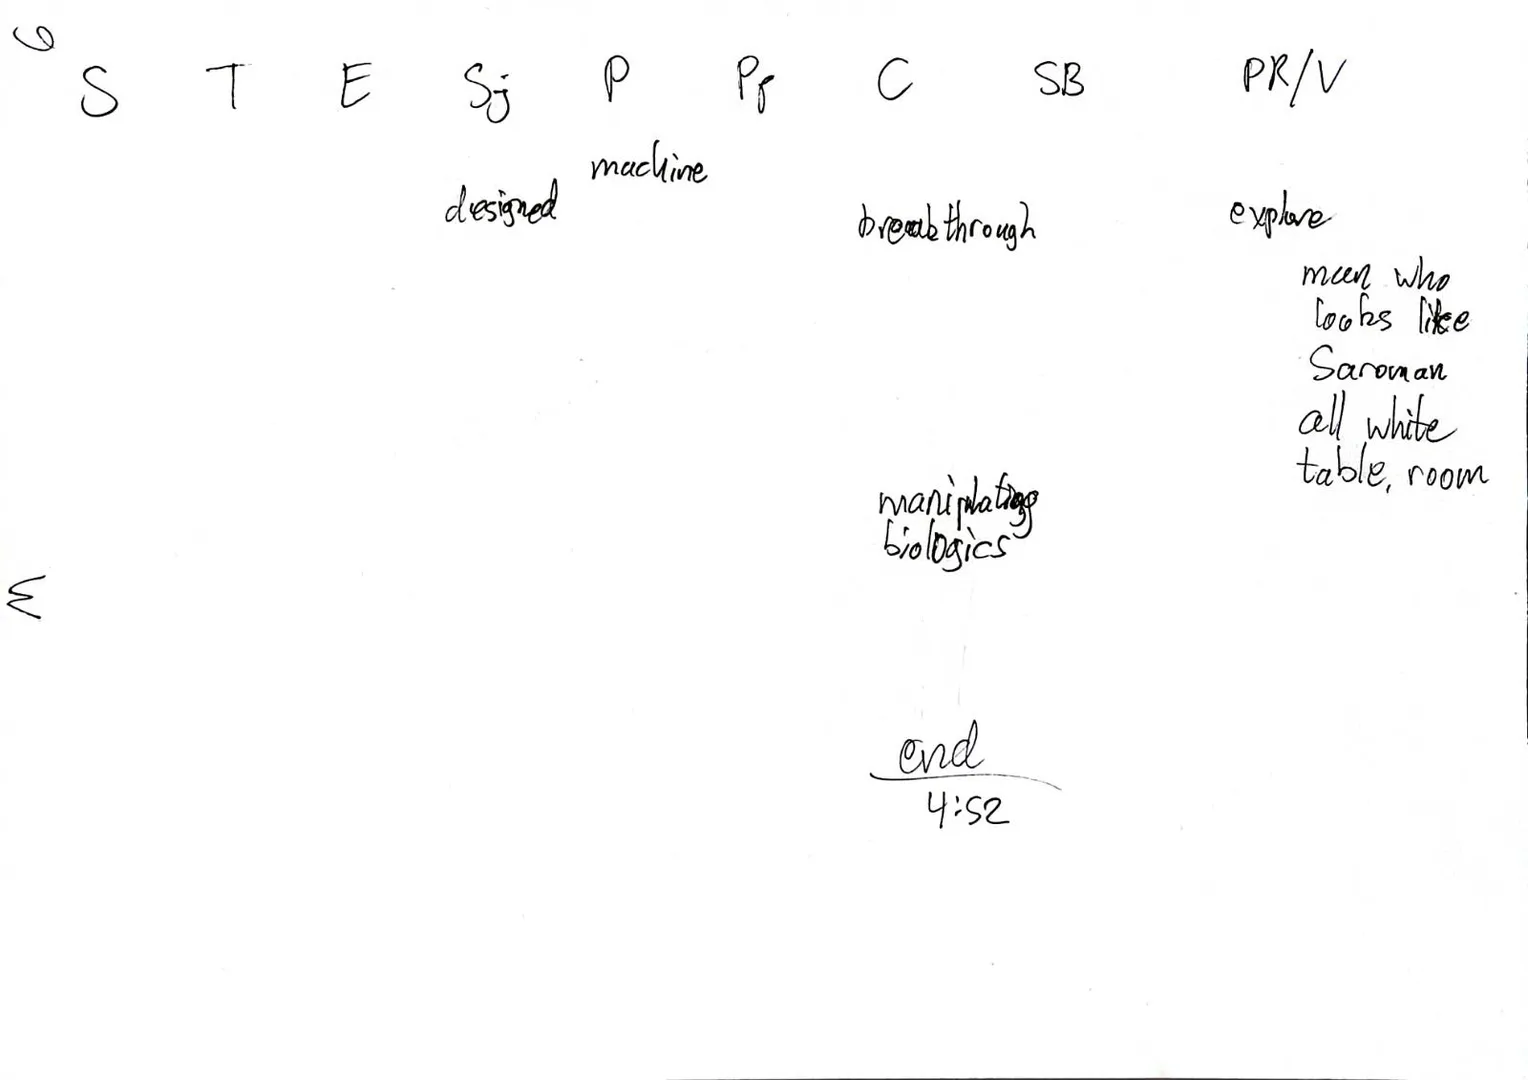 6
S T E Sj P Pf C SB PR/V
machine
designed breakthrough explore
man who
looks like
Saroman
all white
table, room
manipulating
biologics
end
4:52